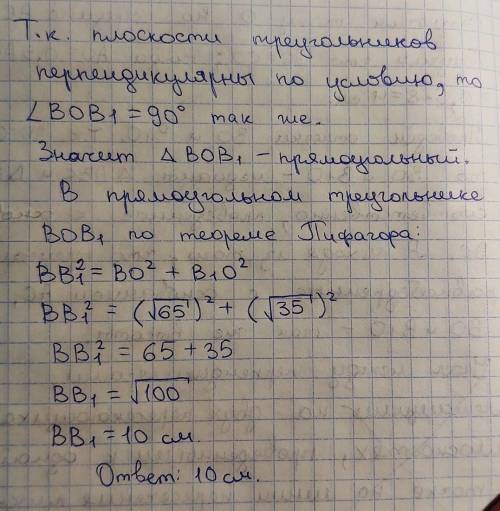 Т.к. плоскости треугольников
перпендикулярны по условию, то
∠BOB₁ = 90° так же.
Значит △BOB₁ – прямоугольный.
В прямоугольном треугольнике
BOB₁ по теореме Пифагора:
BB₁² = BO² + B₁O²
BB₁² = (√65)² + (√35)²
BB₁² = 65 + 35
BB₁ = √100
BB₁ = 10 см.
Ответ: 10 см.